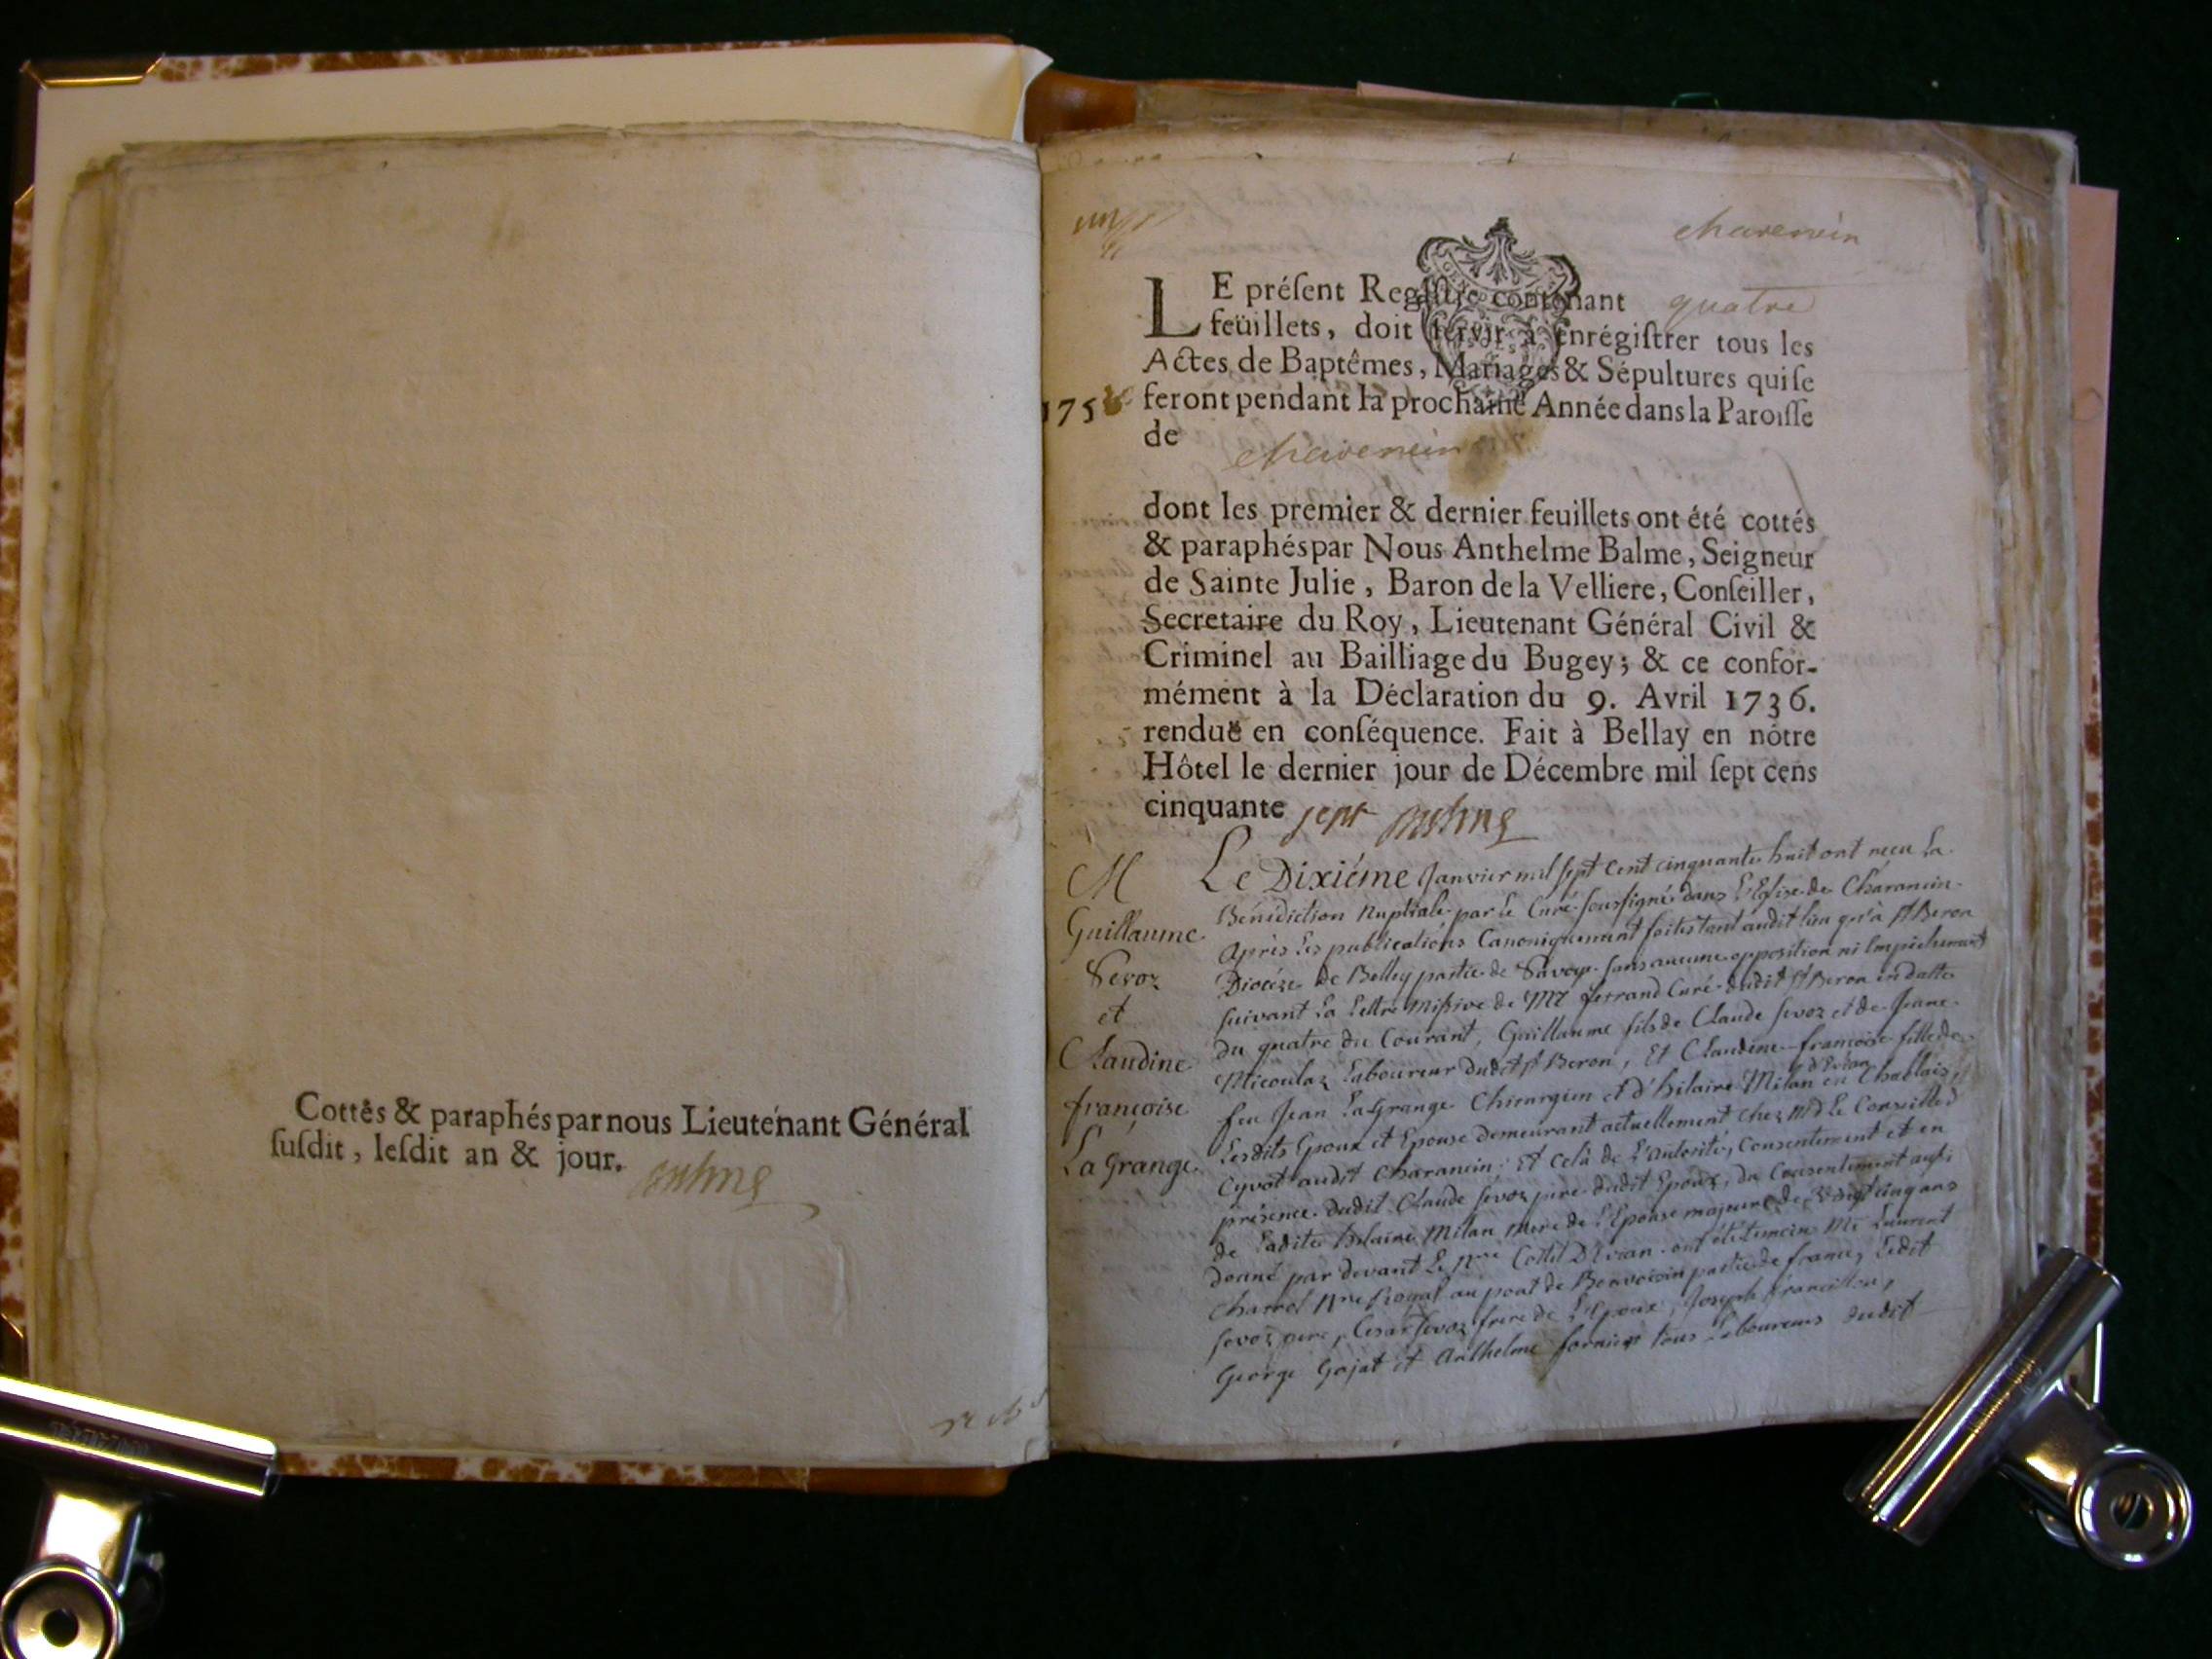 Cottés & paraphés par nous Lieutenant Général
ſuſdit, leſdit an & jour.
charencin
LE préſent Regiſtre contenant quatre
feüillets, doit ſervir à enrégiſtrer tous les
Actes de Baptêmes, Mariages & Sépultures qui ſe
feront pendant la prochaine Année dans la Paroiſſe
1758
de charencin
dont les premier & dernier feuillets ont été cottés
& paraphés par Nous Anthelme Balme, Seigneur
de Sainte Julie, Baron de la Velliere, Conſeiller,
Secretaire du Roy, Lieutenant Général Civil &
Criminel au Bailliage du Bugey; & ce confor-
mément à la Déclaration du 9. Avril 1736.
renduë en conſéquence. Fait à Bellay en nôtre
Hôtel le dernier jour de Décembre mil ſept cens
cinquante sept
M
Guillaume
Sevoz
et
Claudine
françoise
La Grange
Le Dixiéme Janvier mil sept cent cinquante huit ont reçu la
Bénédiction Nuptiale par le Curé soussigné dans l'Eglise de Charancin
après les publications Canoniquement faites tant audit lieu qu'à St Beron
Diocéze de Belley partie de Savoye sans aucune opposition ni Empéchement
suivant la Lettre missive de Mr ferrand Curé dudit St Beron en datte
du quatre du Courant, Guillaume fils de Claude Sevoz et de Jeane
Micoulaz Laboureur dudit St Beron, Et Claudine françoise fille de
feu Jean La Grange Chirurgien et d'hilaire Milan d'Evian en Chablais,
Lesdits Epoux et Epouse demeurant actuellement chez Md Le Conseiller
Cyvot audit Charancin: Et celà de l'autorité, Consentement et en
présence dudit Claude Sevoz pere dudit Epoux, du Consentement aussi
de Ladite hilaire Milan Mere de l'Epouse majeure de vingt cinq ans
donné par devant Le Nre Collet D'Evian. ont été témoins Mr Laurent
Charrel Nre Royal au pont de Beauvoisin partie de france, Ledit
Sevoz pere, Cesar Sevoz frere de l'Epoux, Joseph francillon,
George Gojat et Anthelme fornier tous Laboureurs dudit